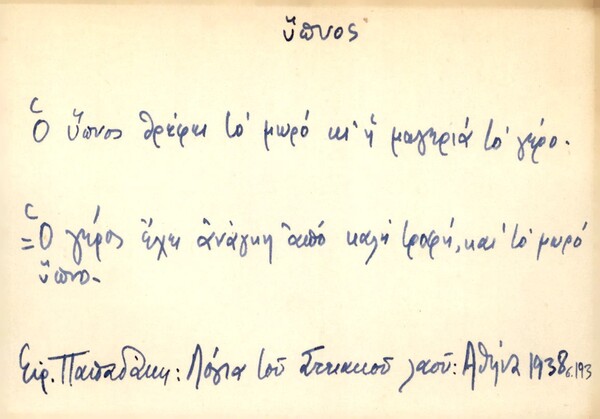 ὕπνος
Ὁ ὕπνος θρέφει τὸ μωρό κι ἡ μαγεριά τὸ γέρο.
= Ὁ γέρος ἔχει ἀνάγκη ἀπό καλή τροφή, καί τό μωρό
ὕπνο.
Εἰρ. Παπαδάκη: Λόγια τοῦ Στειακοῦ λαοῦ: Ἀθήνα 1938 σ. 193